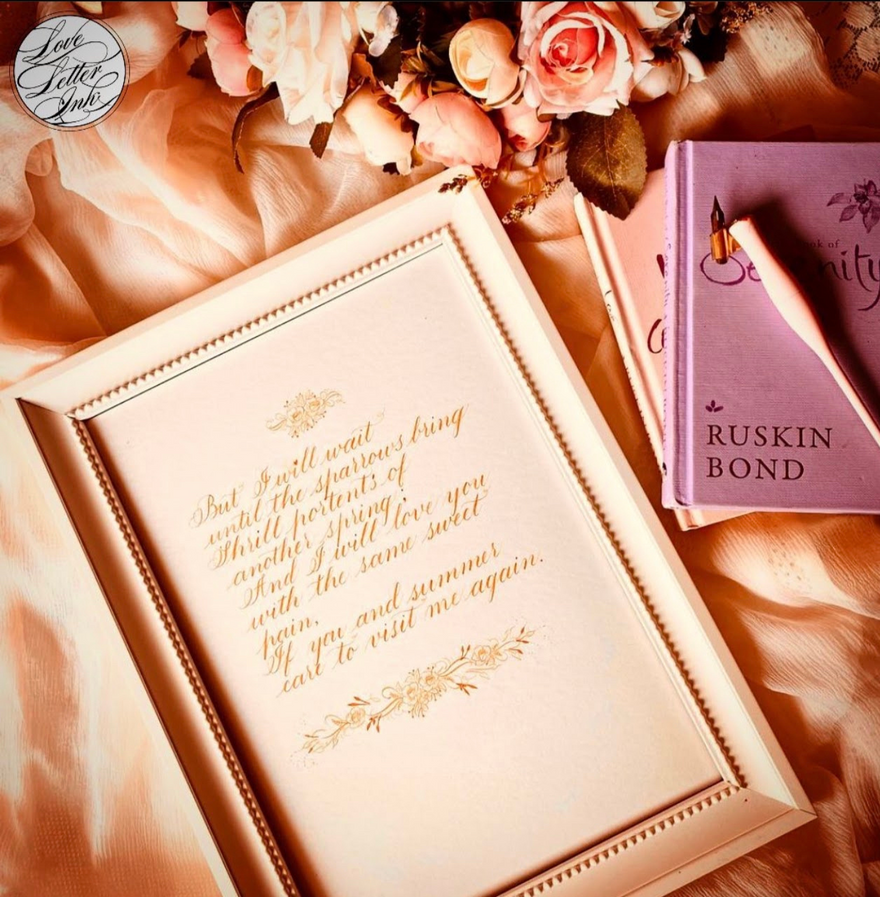 Love
Letter
Ink
But I will wait
until the sparrows bring
Shrill portents of
another spring;
And I will love you
with the same sweet
pain,
If you and summer
care to visit me again.
ok of
Serenity
RUSKIN
BOND